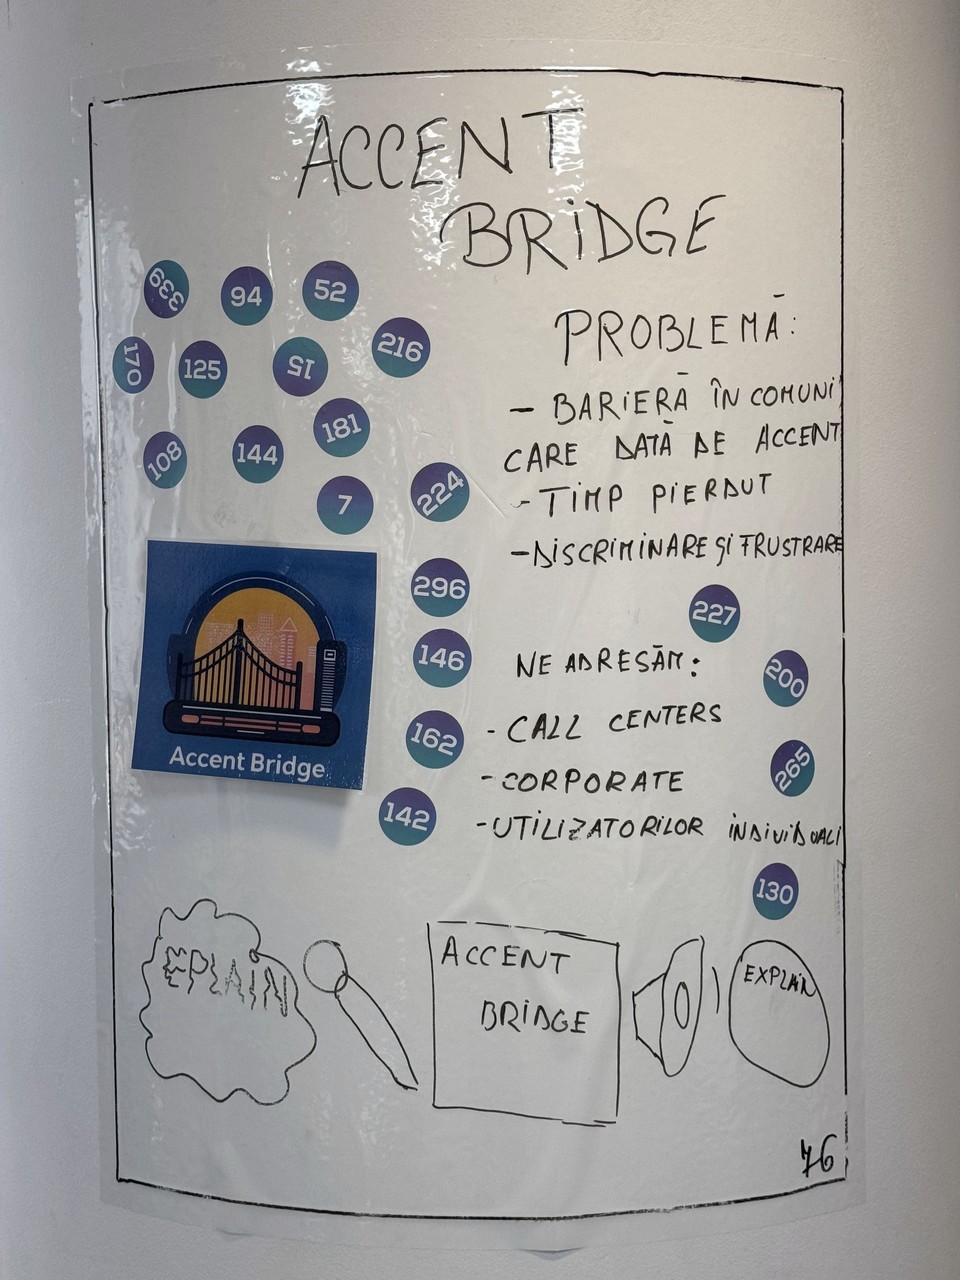 ACCENT
BRIDGE
339
94
52
170
125
15
216
108
144
181
7
224
PROBLEMĂ:
- BARIERĂ ÎN COMUNI
CARE DATĂ DE ACCENT
- TIMP PIERDUT
- DISCRIMINARE ȘI FRUSTRARE
296
227
146
NE ADRESĂM:
200
162
- CALL CENTERS
265
- CORPORATE
142
- UTILIZATORILOR INDIVIDUALI
130
Accent Bridge
EPLAIN
ACCENT
BRIDGE
EXPLAIN
76